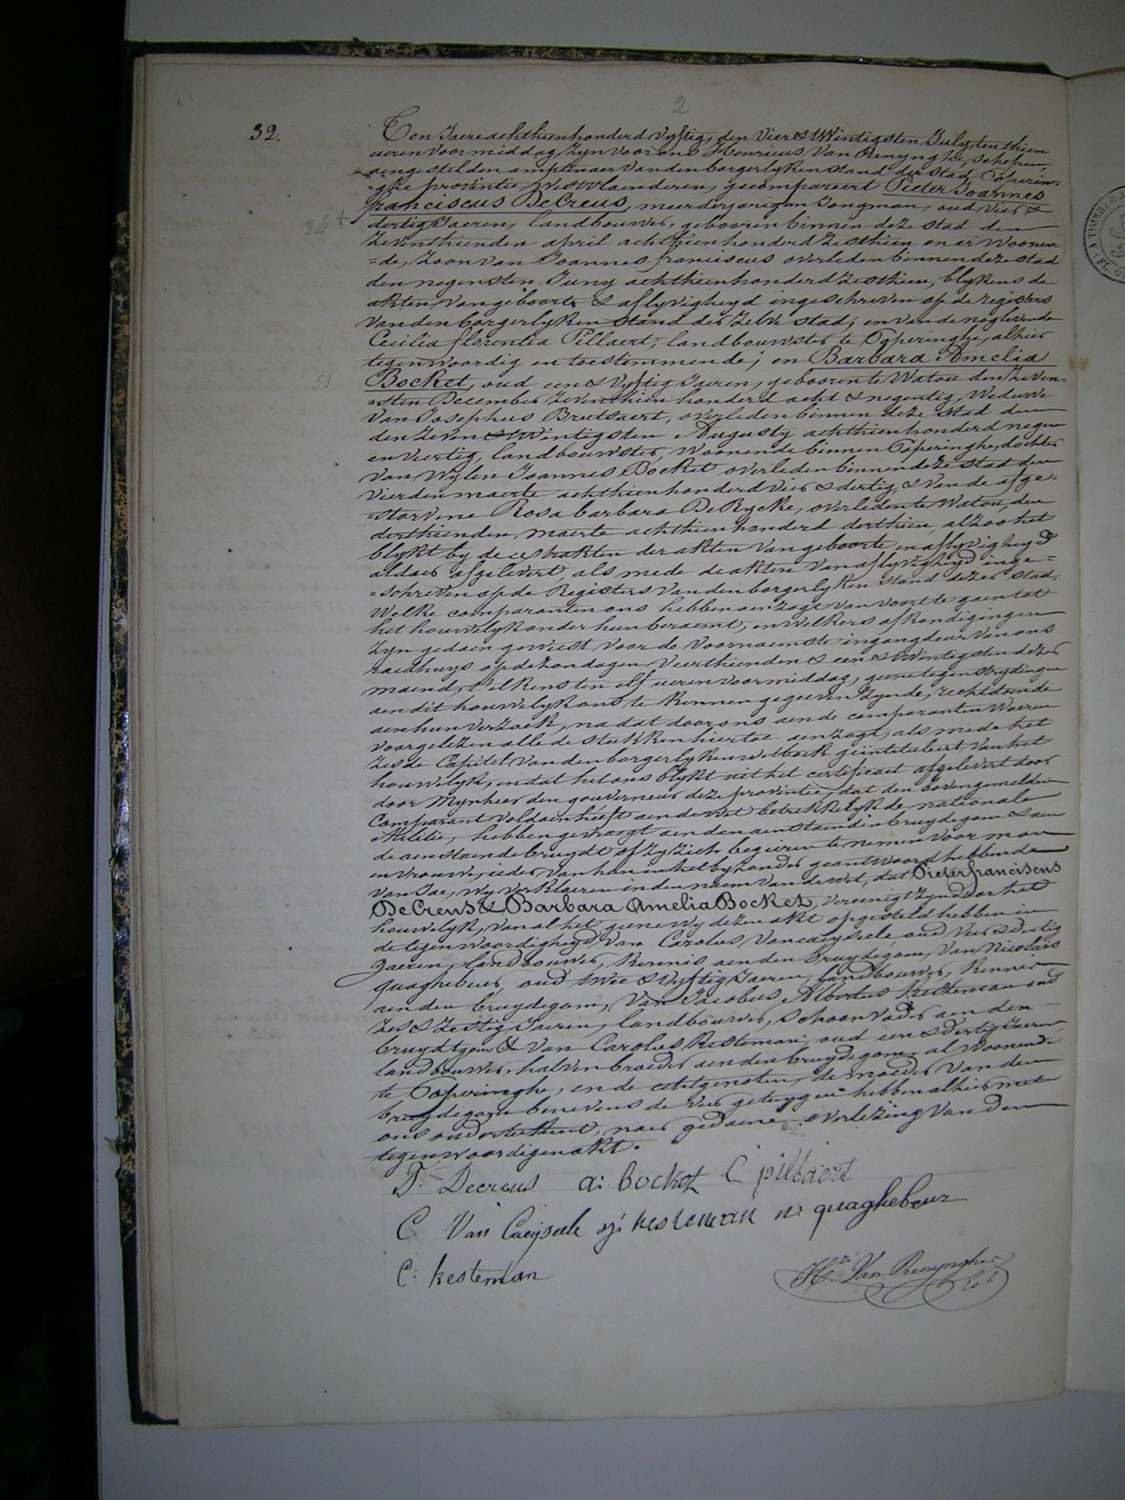 2
32.
Ten Jaere achthienhonderd vyftig, den Vier & twintigsten July, ten thien
ueren voormiddag zyn voor ons Henricus Van Renynghe, schepen,
aengestelden amptenaer van den borgerlyken stand der stad Poperin=
=ghe provintie Westvlaenderen, gecompareert Pieter Joannes
franciscus DeCreus, meerderjarigen Jongman, oud vier &
dertig Jaeren, landbouwer, gebooren binnen deze stad den
zeventhienden april achthienhonderd zesthien en er woonen
=de, zoon van Joannes franciscus overleden binnen deze stad
den negensten Juny achthienhonderd zesthien, blykens de
akten van geboorte & aflyvigheyd ingeschreven op de registers
van den borgerlyken stand der zelve stad; en van de nog levende
Cecilia florentia Pillaert, landbouwster te Poperinghe, alhier
tegenwoordig en toestemmende; en Barbara Amelia
51
Bocket, oud een & vyftig Jaeren, gebooren te Watou den zeven=
=sten December zeventhien honderd acht & negentig, Weduwe
van Josephus Brutsaert, overleden binnen deze stad den
den zeven & twintigsten Augusty achthienhonderd negen
en veertig, landbouwster, woonende binnen Poperinghe, dochter
van Wylen Joannes Bocket overleden binnen deze stad den
vierden maerte achthienhonderd vier & dertig & van de afge=
=storvene Rosa barbara DeRycke, overleden te Watou, den
derthienden maerte achthienhonderd derthien, alzoo het
blykt by de extrakten der akten van geboorte en aflyvigheyd
aldaer afgelevert, als mede de akten van aflyvigheyd inge=
=schreven op de Registers van den borgerlyken stand dezer stad,
Welke comparanten ons hebben aenzogt van voort te gaen tot
het houwelyk onder hun beraemt, en welkers afkondigingen
zyn gedaen geweest voor de voornaemste ingangdeur van ons
raedhuys op de zondagen veerthienden & een & twintigsten dezer
maend, telkens ten elf ueren voormiddag, geene tegenstrydingen
aen dit houwelyk ons te kennen gegeven zynde, rechtdoende
aen hun verzoek, na dat door ons aen de comparanten waeren
voorgelezen alle de stukken hiertoe aenzogt, als mede het
zesde Capitel van den borgerlyken wetboek geintituleert van het
houwelyk, en dat het ons blykt uit het certificaet afgelevert door
door Mynheer den gouverneur deze provintie, dat den bovengemelden
Comparant voldaen heeft aen de wet betrekkelyk de nationale
Militie, hebben gevraegt aen den aenstaenden bruydegom & aen
de aenstaende bruydt of zy zich begeiren te nemen voor man
en vrouwe, ieder van hun in het byzonder geantwoord hebbende
van Jae, Wy verklaeren in den naem van de wet, dat Pieter franciscus
DeCreus & Barbara Amelia Bocket, vereenigt zyn door het
houwelyk, van al het geene wy dezen akt opgesteld hebben in
de tegenwoordigheyd van Carolus Vancayseele oud vier & dertig
Jaeren, landbouwer, kennis aen den bruydegom, van Nicolaus
quaghebeur, oud twee & vyftig Jaeren, landbouwer, kennis
aen den bruydegom, van Jacobus Albertus Kesteman oud
zes & zestig Jaeren, landbouwer, schoonvader aen den
bruydegom & van Carolus Kesteman, oud een & dertig Jaeren
landbouwer, halven broeder aen den bruydegom, al woonende
te Poperinghe, en de echtgenoten, de moeder van den
bruydegom benevens de vier getuygen hebben alhier met
ons onderteekent, naer gedaene overlezing van den
tegenwoordigen akt.
P. Decreus a: bocket C pillaert
C Van Caeyseele kesteman n: quaghebeur
C: kesteman
Hri Van Renynghe